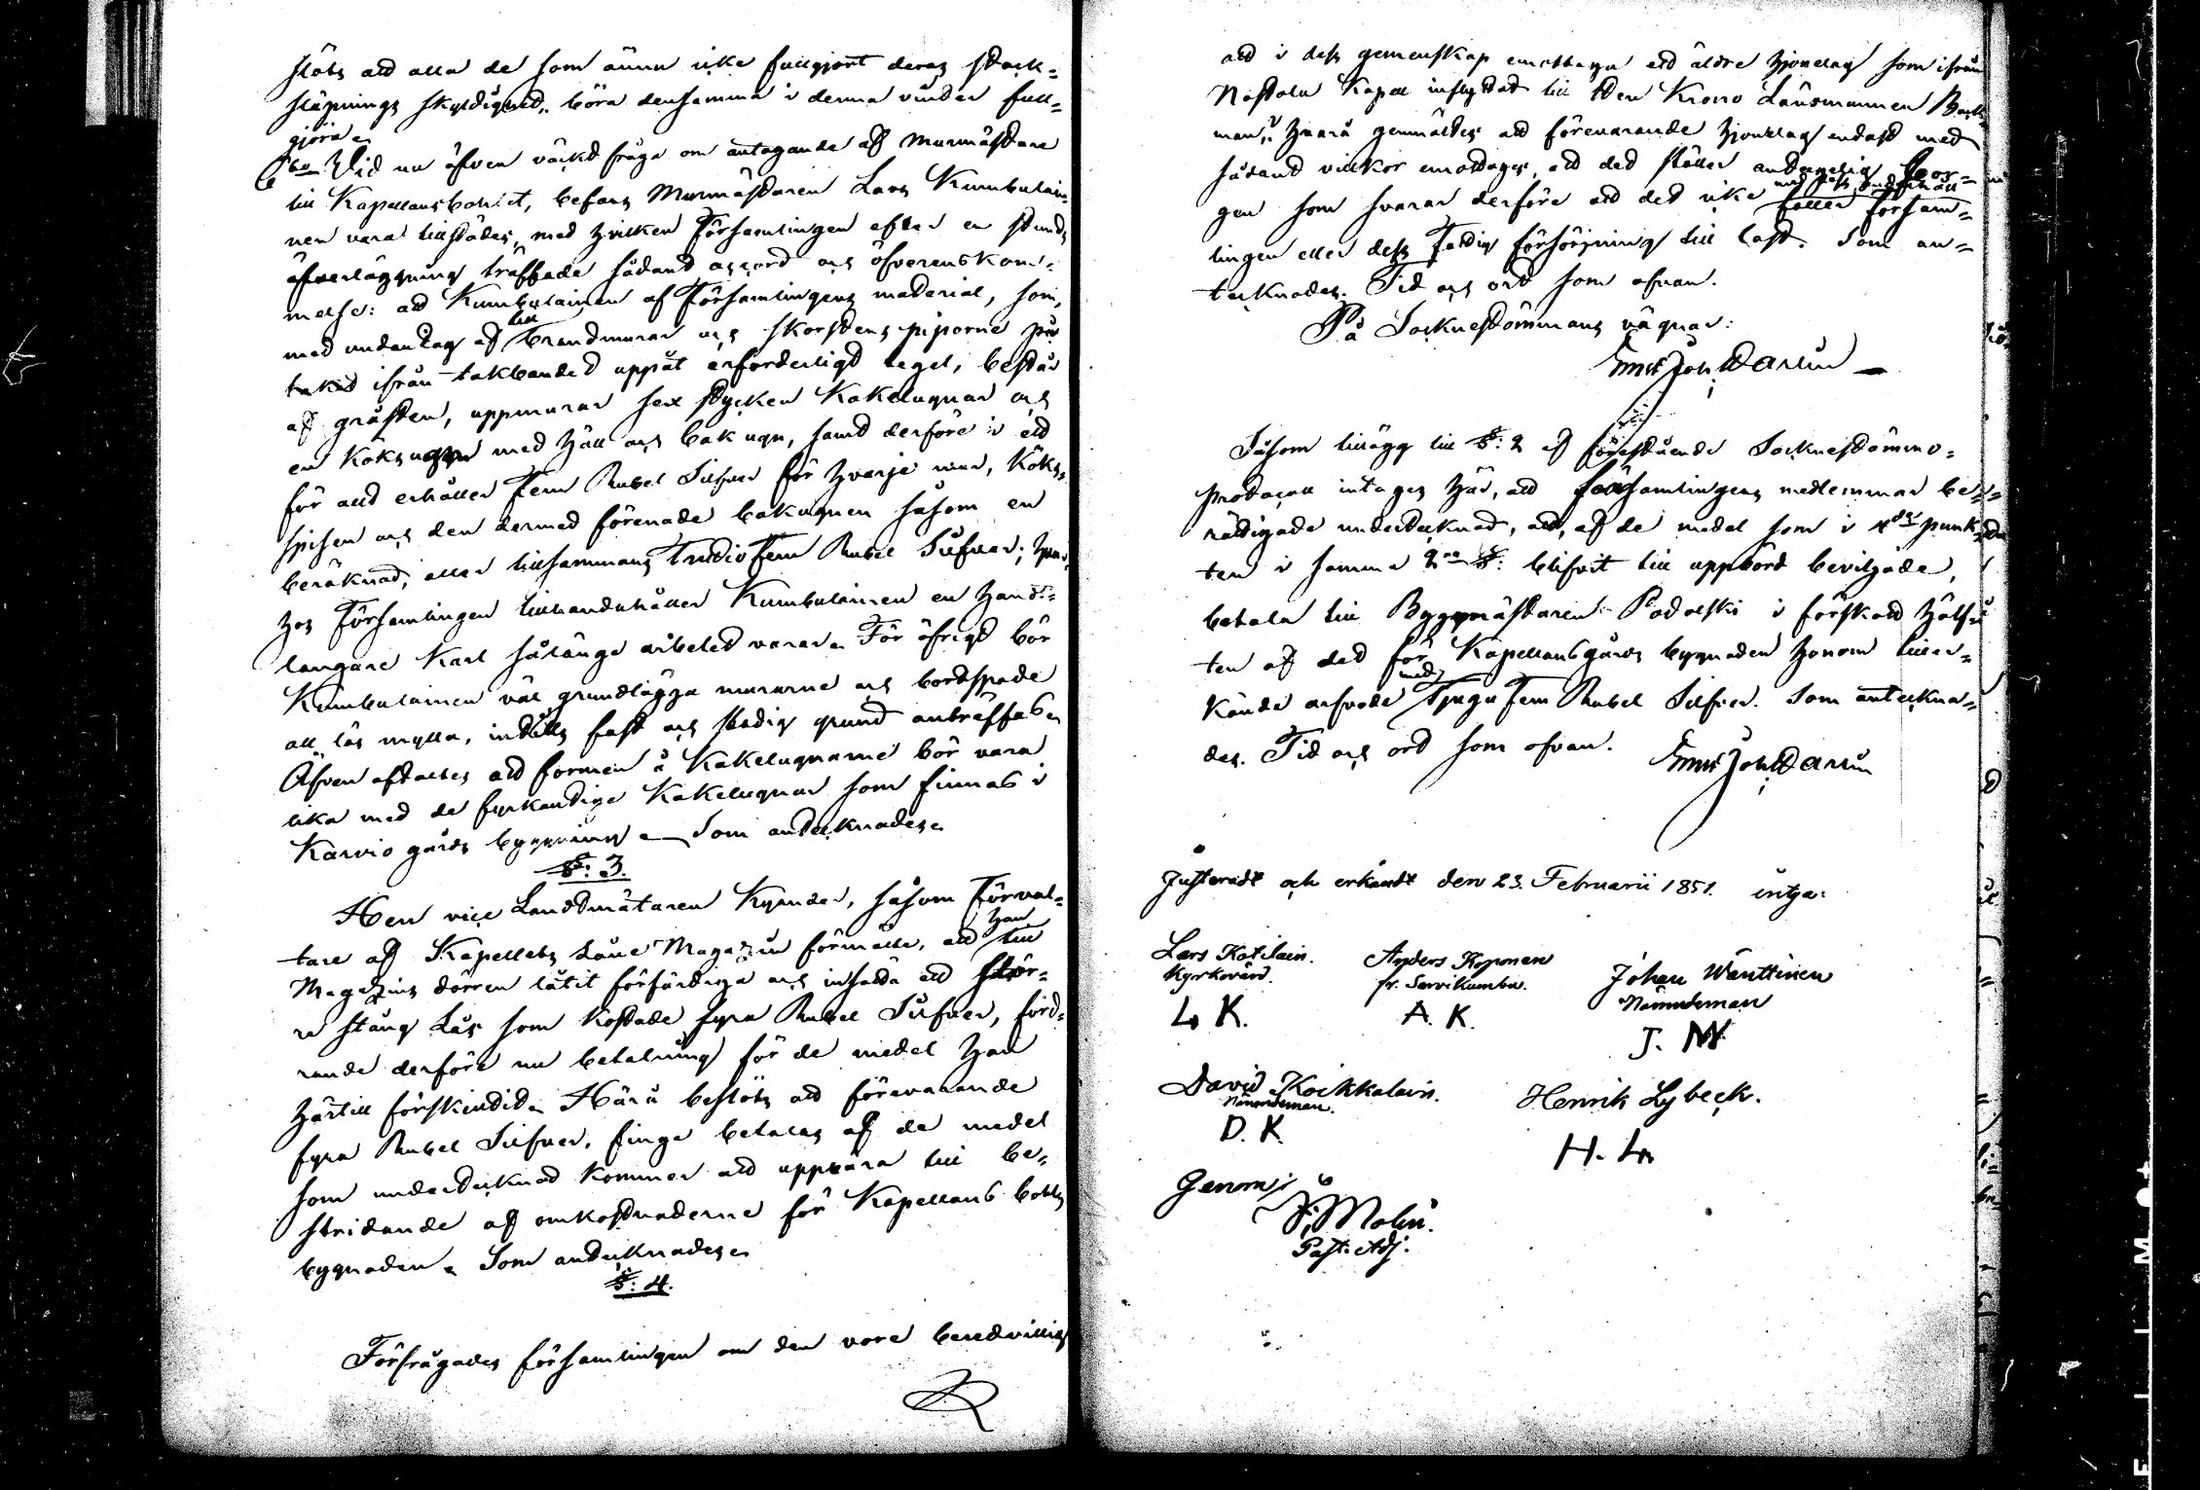 slöts att alla de som ännu icke fullgjort deras stock-
släpnings skyldighet, böra densamma i denna vinter full-
göra.
6to Vid nu äfven väckt fråga om antagande af Murmästare
till Kapellansbohlet, befans Murmästaren Lars Kumbulai-
nen vara tillstädes, med hvilken Församlingen efter en stunds
öfverläggning träffade sådant accord och öfverenskom-
melse: att Kumbulainen af Församlingens material, som,
med undantag af till brandmurar och skorstens piporne på
taket ifrån takbandet uppåt erforderligt tegel, består
af gråsten, uppmurar sex stycken Kakelugnar och
en Köksugn med häll och bakugn, samt derföre i ett
för allt erhåller Fem Rubel Silfver för hvarje mur, Köks-
spisen och den dermed förenade bakugnen såsom en
beräknad, eller tillsammans Trettiofem Rubel Silfver; hvar-
hos Församlingen tillhandahåller Kumbulainen en hand-
langare Karl sålänge arbetet varar. För öfrigt bör
Kumbulainen väl grundlägga murarne och bortspade
all lös mylla, intills fast och stadig grund anträffas.
Äfven aftaltes att formen å Kakelugnarne bör vara
lika med de fyrkantiga Kakelugnar som finnas i
Karvio gårds byggning. Som antecknades.
§: 3.
Herr vice Landtmätaren Kynder, såsom Förval-
tare af Kapellets Låne Magazin förmälte, att han till
Magazins dörren låtit förfärdiga och insätta ett stör-
re stång Lås som kostade fyra Rubel Silfver, ford-
rande derföre nu betalning för de medel han
härtill förskjutit. Härå beslöts att förevarande
fyra Rubel Silfver, finge betalas af de medel
som undertecknad kommer att uppbära till be-
stridande af omkostnaderne för Kapellans bohls
byggnaden. Som antecknades.
§: 4.
Förfrågades församlingen om den vore beredvillig
att i dess gemenskap emottaga ett äldre hjonelag som ifrån
Kapell inflyttat till Krono Länsmannen
man, hvarå genmältes att förevarande hjonelag endast med
sådant vilkor emottages, att det ställer antagelig bor-
gen som svarar derföre att det icke med sitt underhåll faller försam-
lingen eller dess Fattig försörjning till last. Som an-
tecknades. Tid och ort som ofvan.
På Sockneståmmans vägnar:
Såsom tillägg till §: 2 af föreståênde Socknestämmo-
protocoll intages här, att församlingens medlemmar be-
rättigade undertecknad, att, af de medel som i 4de punk-
ten i samma 2ne §: blifvit till uppbörd beviljade,
betala till Byggmästaren Podolski i förskott hälf-
ten af det för Kapellansgårds byggnaden honom tiller-
kände arfvode med Tjugufem Rubel Silfver. Som anteckna-
des. Tid och ort som ofvan.
Justeradt och erkändt den 23. Februarii 1851. intyga:
Lars Kotilain. Anders Koponen Johan Wänttinen
Kyrkovärd. fr. Sarvikumbu. Nämndeman
L. K. A. K. J. W.
David Koikkalain. Henrik Lybeck.
Nämndeman.
D. K. H. L.
Genom
Molin.
Past. Adj.